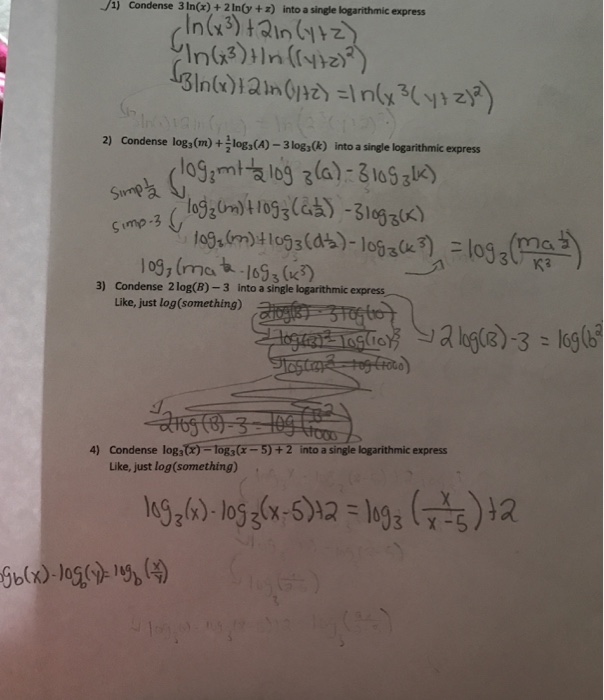 1) Condense 3 ln(x) + 2 ln(y + z) into a single logarithmic express
ln(x³) + 2ln(y+z)
ln(x³)+ln((y+z)²)
3ln(x)+2ln(y+z) = ln(x³(y+z)²)
2) Condense log₃(m) + ½log₃(A) − 3 log₃(k) into a single logarithmic express
log₃m+½ log₃(a) - 3log₃(k)
simp ½
log₃(m)+log₃(a½) -3log₃(k)
simp -3
log₃(m)+log₃(a½)-log₃(k³) = log₃(ma½/k³)
log₃(ma½ -log₃(k³)
3) Condense 2 log(B) − 3 into a single logarithmic express
Like, just log(something)
2log(B) - 3log(10)
log(B)² log(10)³
2log(B)-3 = log(b²
log(B)² - log(1000)
2log(B)-3 = log(B²/1000)
4) Condense log₃(x) − log₃(x − 5) + 2 into a single logarithmic express
Like, just log(something)
log₃(x)-log₃(x-5)+2 = log₃(x/x-5)+2
gb(x)-logb(y)=logb(x/y)